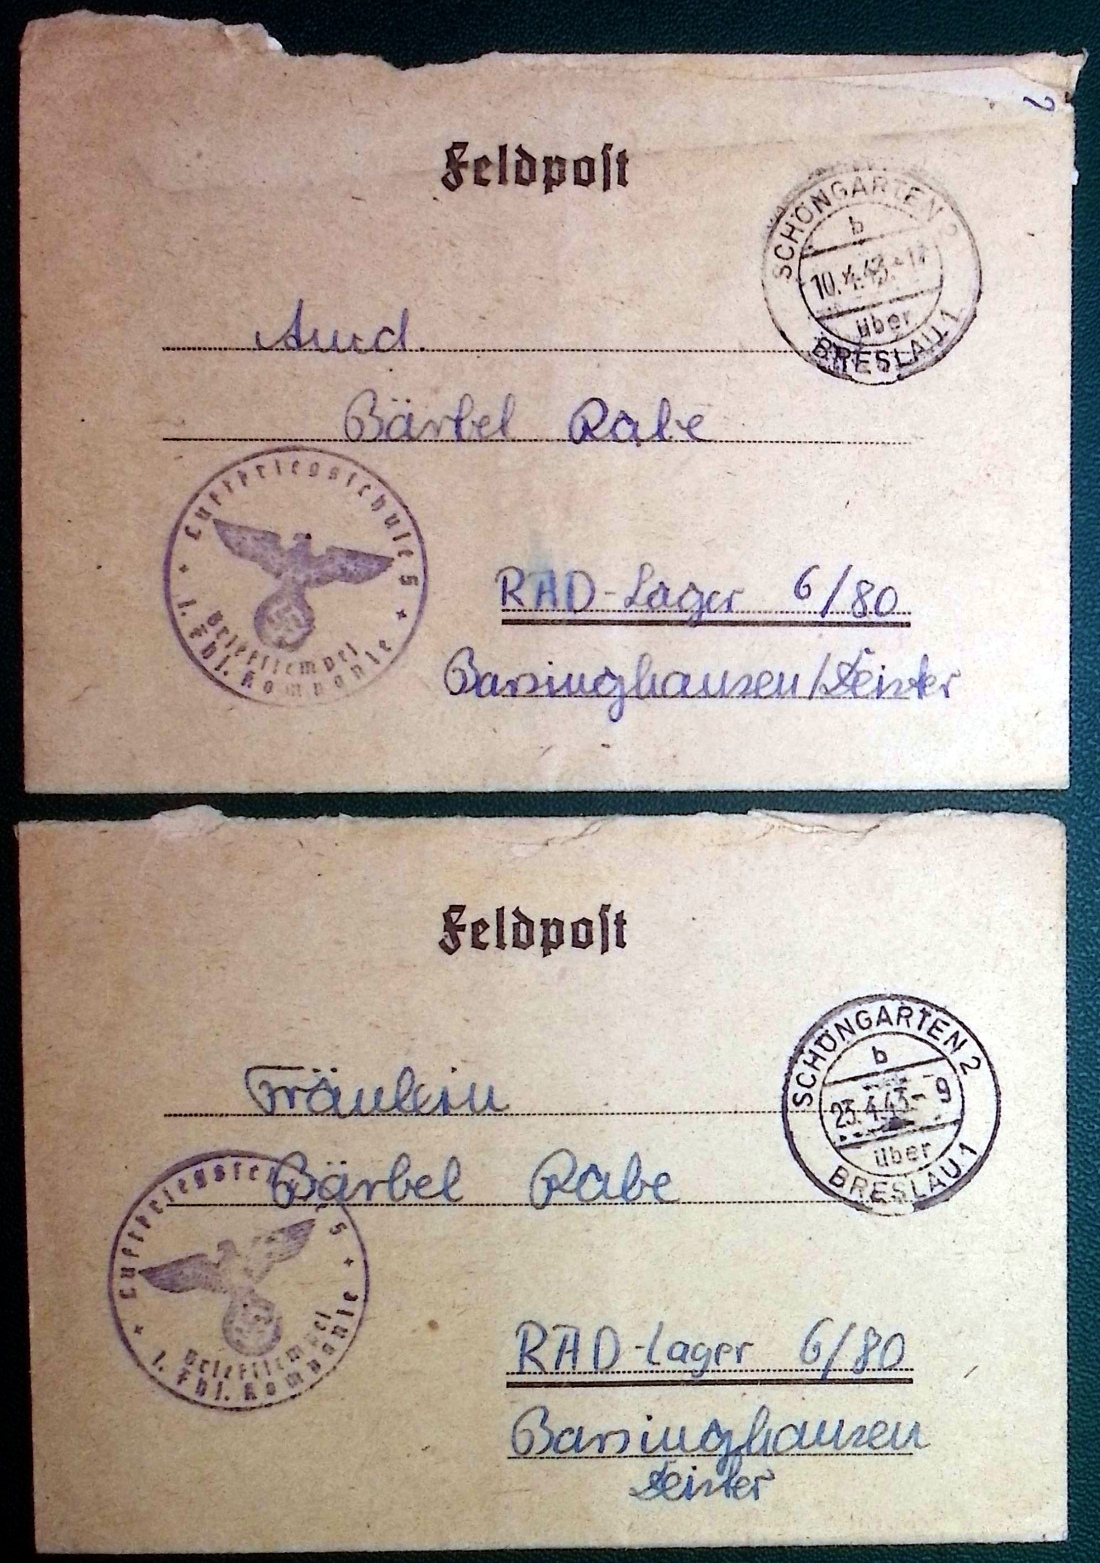 Feldpost
2
SCHÖNGARTEN 2
b
10.4.43.-17
über
BRESLAU 1
Bärbel Rabe
Luftkriegsschule 5
Briefstempel
1. Fbl. Kompanie
RAD-Lager 6/80
Barsinghausen/Deister
Feldpost
SCHÖNGARTEN 2
b
23.4.43.-9
über
BRESLAU 1
Fräulein
Bärbel Rabe
Luftkriegssch 5
Briefstempel
1. Fbl. Kompanie
RAD-Lager 6/80
Barsinghausen
Deister